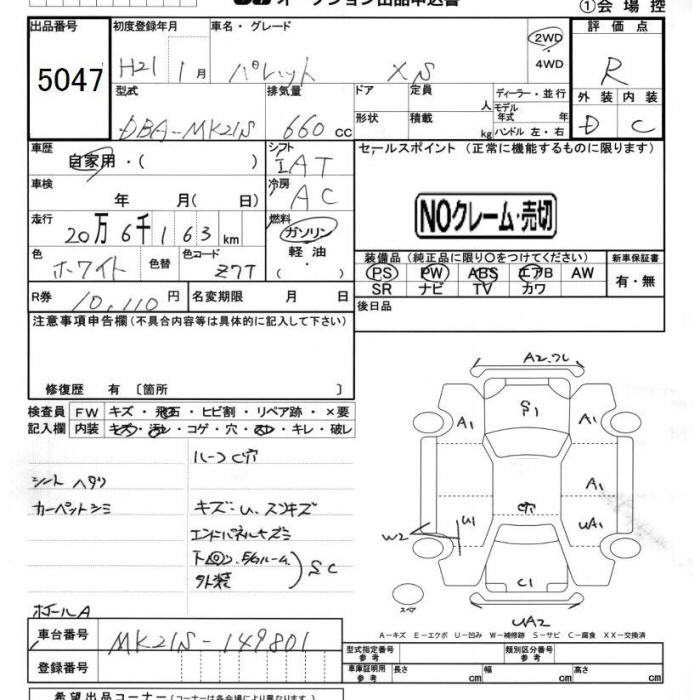 オークション出品申込書
①会場控
出品番号 初度登録年月 車名・グレード 評価点
5047 H21 1月 パレット XS 2WD 4WD R
型式 排気量 ドア 定員 人 ディーラー・並行 外装 内装
DBA-MK21S 660 cc 形状 積載 kg モデル年式 年 ハンドル 左・右 D C
車歴 自家用・( ) シフト IAT セールスポイント (正常に機能するものに限ります)
車検 年 月( 日) 冷房 AC
NOクレーム・売切
走行 20万6千163km 燃料 ガソリン 軽油 ( )
色 ホワイト 色替 色コード Z7T
装備品(純正品に限り〇をつけてください) 新車保証書
PS PW ABS エアB AW 有・無
SR ナビ TV カワ
R券 10,110円 名変期限 月 日 後日品
注意事項申告欄(不具合内容等は具体的に記入して下さい)
修復歴 有 〔箇所 〕
検査員 FW キズ・飛石・ヒビ割・リペア跡・×要
記入欄 内装 キズ・汚レ・コゲ・穴・スレ・キレ・破レ
A2.フレ
S1
A1 A1
A1
U1 穴 UA1
W2
C1
スペア
UA2
ルーフC穴
シートヘタリ
カーペットシミ キズ・U.スリキズ
エンドパネルキズミ
下回り.Eルーム
外装 SC
ポールA
A-キズ E-エクボ U-凹み W-補修跡 S-サビ C-腐食 XX-交換済
車台番号 MK21S-149801
型式指定番号 参考 類別区分番号 参考
登録番号
車庫証明用 参考 長さ cm 幅 cm 高さ cm
希望出品コーナー(コーナーは各会場により異なります)